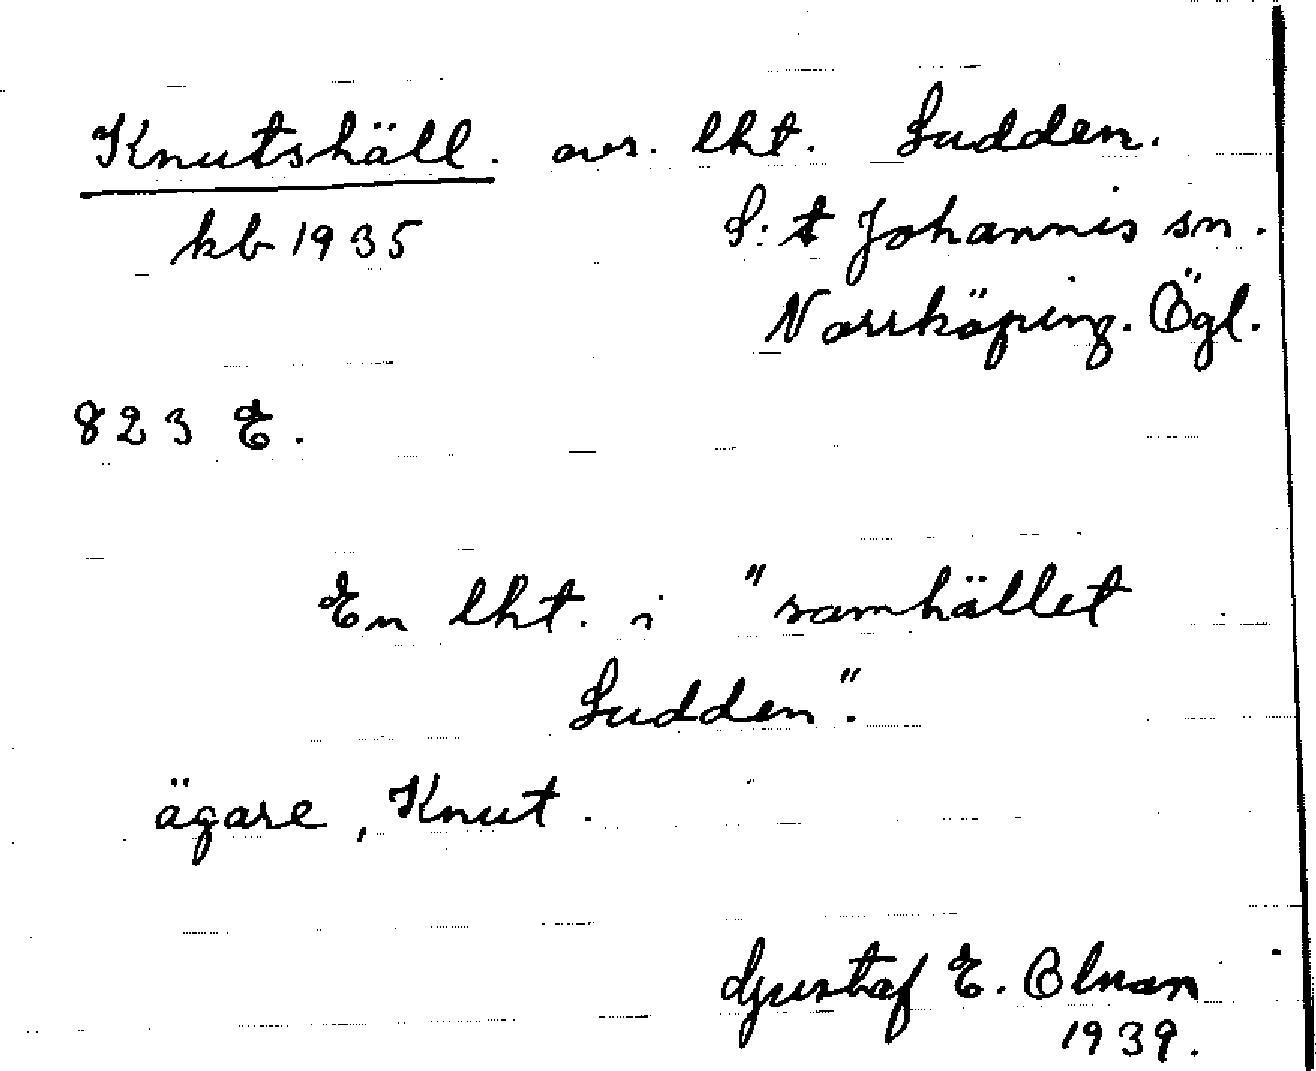 Knutshäll. avs. lht. Sudden.
kb 1935 S:t Johannis sn.
Norrköping. Ögl.
823 E.
En lht. i "samhället
Sudden".
ägare, Knut.
Gustaf E. Olnan
1939.